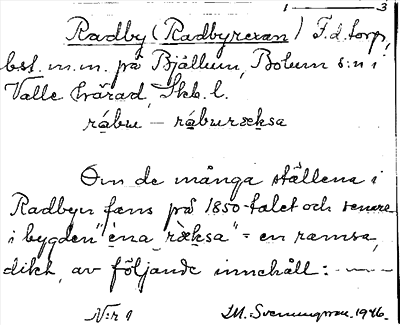 1 — 3
Radby (Radbyrexan) F.d. torp,
bst. m.m. på Bjällum, Bolum s:n i
Valle härad, Skb. l.
rábu — ráburæksa
Om de många ställena i
Radbyn fans på 1850-talet och senare
i bygden "èna ræksa" = en ramsa,
dikt, av följande innehåll: — — —
N:r 9
1946.